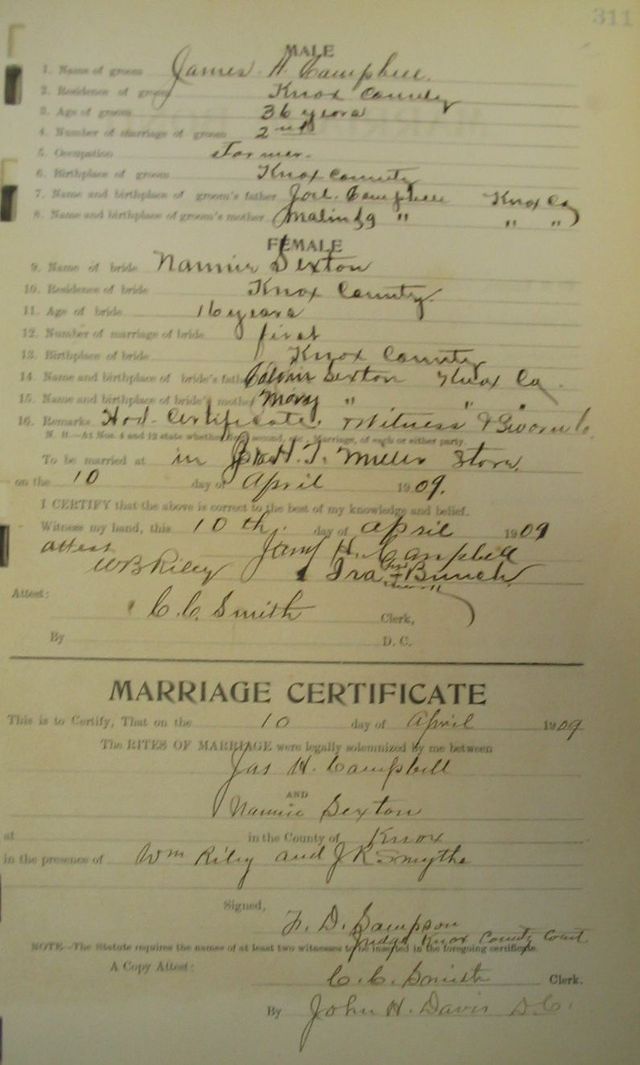 311
MALE
1. Name of groom James H. Campbell.
2. Residence of groom Knox County
3. Age of groom 36 years
4. Number of marriage of groom 2nd
5. Occupation Farmer.
6. Birthplace of groom Knox County
7. Name and birthplace of groom's father Joel Campbell Knox Co
8. Name and birthplace of groom's mother Malinda " " "
FEMALE
9. Name of bride Nannie Sexton
10. Residence of bride Knox County
11. Age of bride 16 years
12. Number of marriage of bride first
13. Birthplace of bride Knox County
14. Name and birthplace of bride's father Sexton Knox Co
15. Name and birthplace of bride's mother Mary " " "
16. Remarks Had Certificate. Witness & Sworn to.
N. B.—At Nos. 4 and 12 state whether first, second, etc., Marriage, of each or either party.
To be married at in T. Miller Store.
on the 10 day of April 1909.
I CERTIFY that the above is correct to the best of my knowledge and belief.
Witness my hand, this 10th. day of April 1909
attest James H. Campbell
WB Riley Ira Bunch
Attest:
C. C. Smith Clerk,
By D. C.
MARRIAGE CERTIFICATE
This is to Certify, That on the 10 day of April 1909
The RITES OF MARRIAGE were legally solemnized by me between
Jas H. Campbell
AND
Nannie Sexton
at in the County of Knox
in the presence of Wm Riley and J R Smythe
Signed,
F. D. Sampson
Judge Knox County Court
NOTE—The Statute requires the names of at least two witnesses to be inserted in the foregoing certificate.
A Copy Attest:
C. C. Smith Clerk.
By John H. Davis D.C.